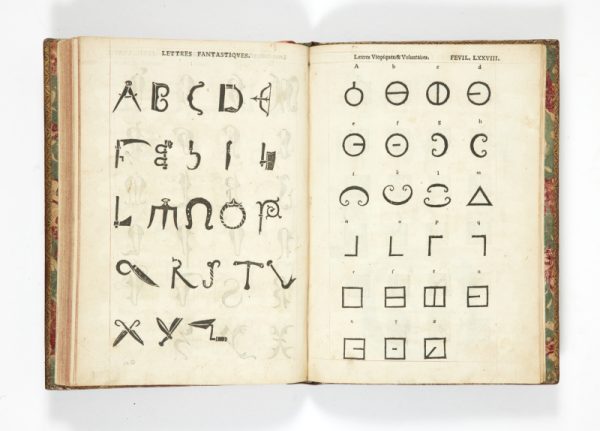 LETTRES FANTASTIQVES.
A B C D E
F G H I K
L M N O P
Q R S T V
X Y Z
Lettres Vtopiques & Voluntaires. FEVIL. LXXVIII.
A b c d
e f g h
i k l m
n o p q
r ſ t u
x y z